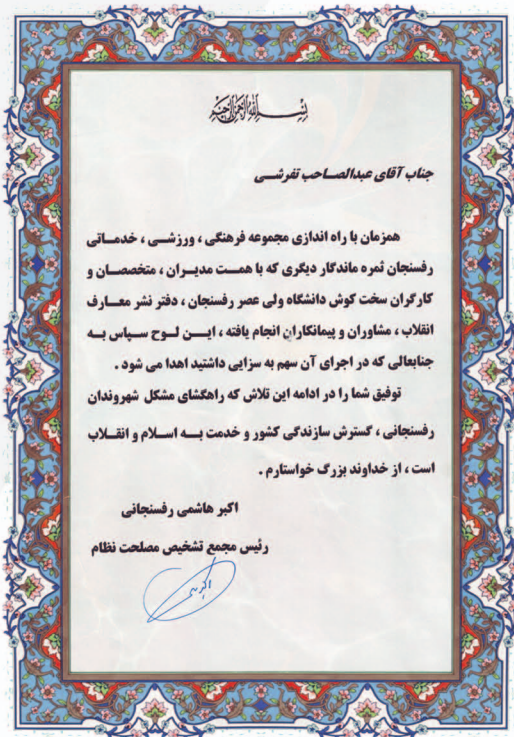 بسم الله الرحمن الرحیم
جناب آقای عبدالصاحب تفرشی
همزمان با راه اندازی مجموعه فرهنگی ، ورزشی ، خدماتی
رفسنجان ثمره ماندگار دیگری که با همت مدیران ، متخصصان و
کارگران سخت کوش دانشگاه ولی عصر رفسنجان ، دفتر نشر معارف
انقلاب ، مشاوران و پیمانکاران انجام یافته ، این لوح سپاس به
جنابعالی که در اجرای آن سهم به سزایی داشتید اهدا می شود .
توفیق شما را در ادامه این تلاش که راهگشای مشکل شهروندان
رفسنجانی ، گسترش سازندگی کشور و خدمت به اسلام و انقلاب
است ، از خداوند بزرگ خواستارم .
اکبر هاشمی رفسنجانی
رئیس مجمع تشخیص مصلحت نظام